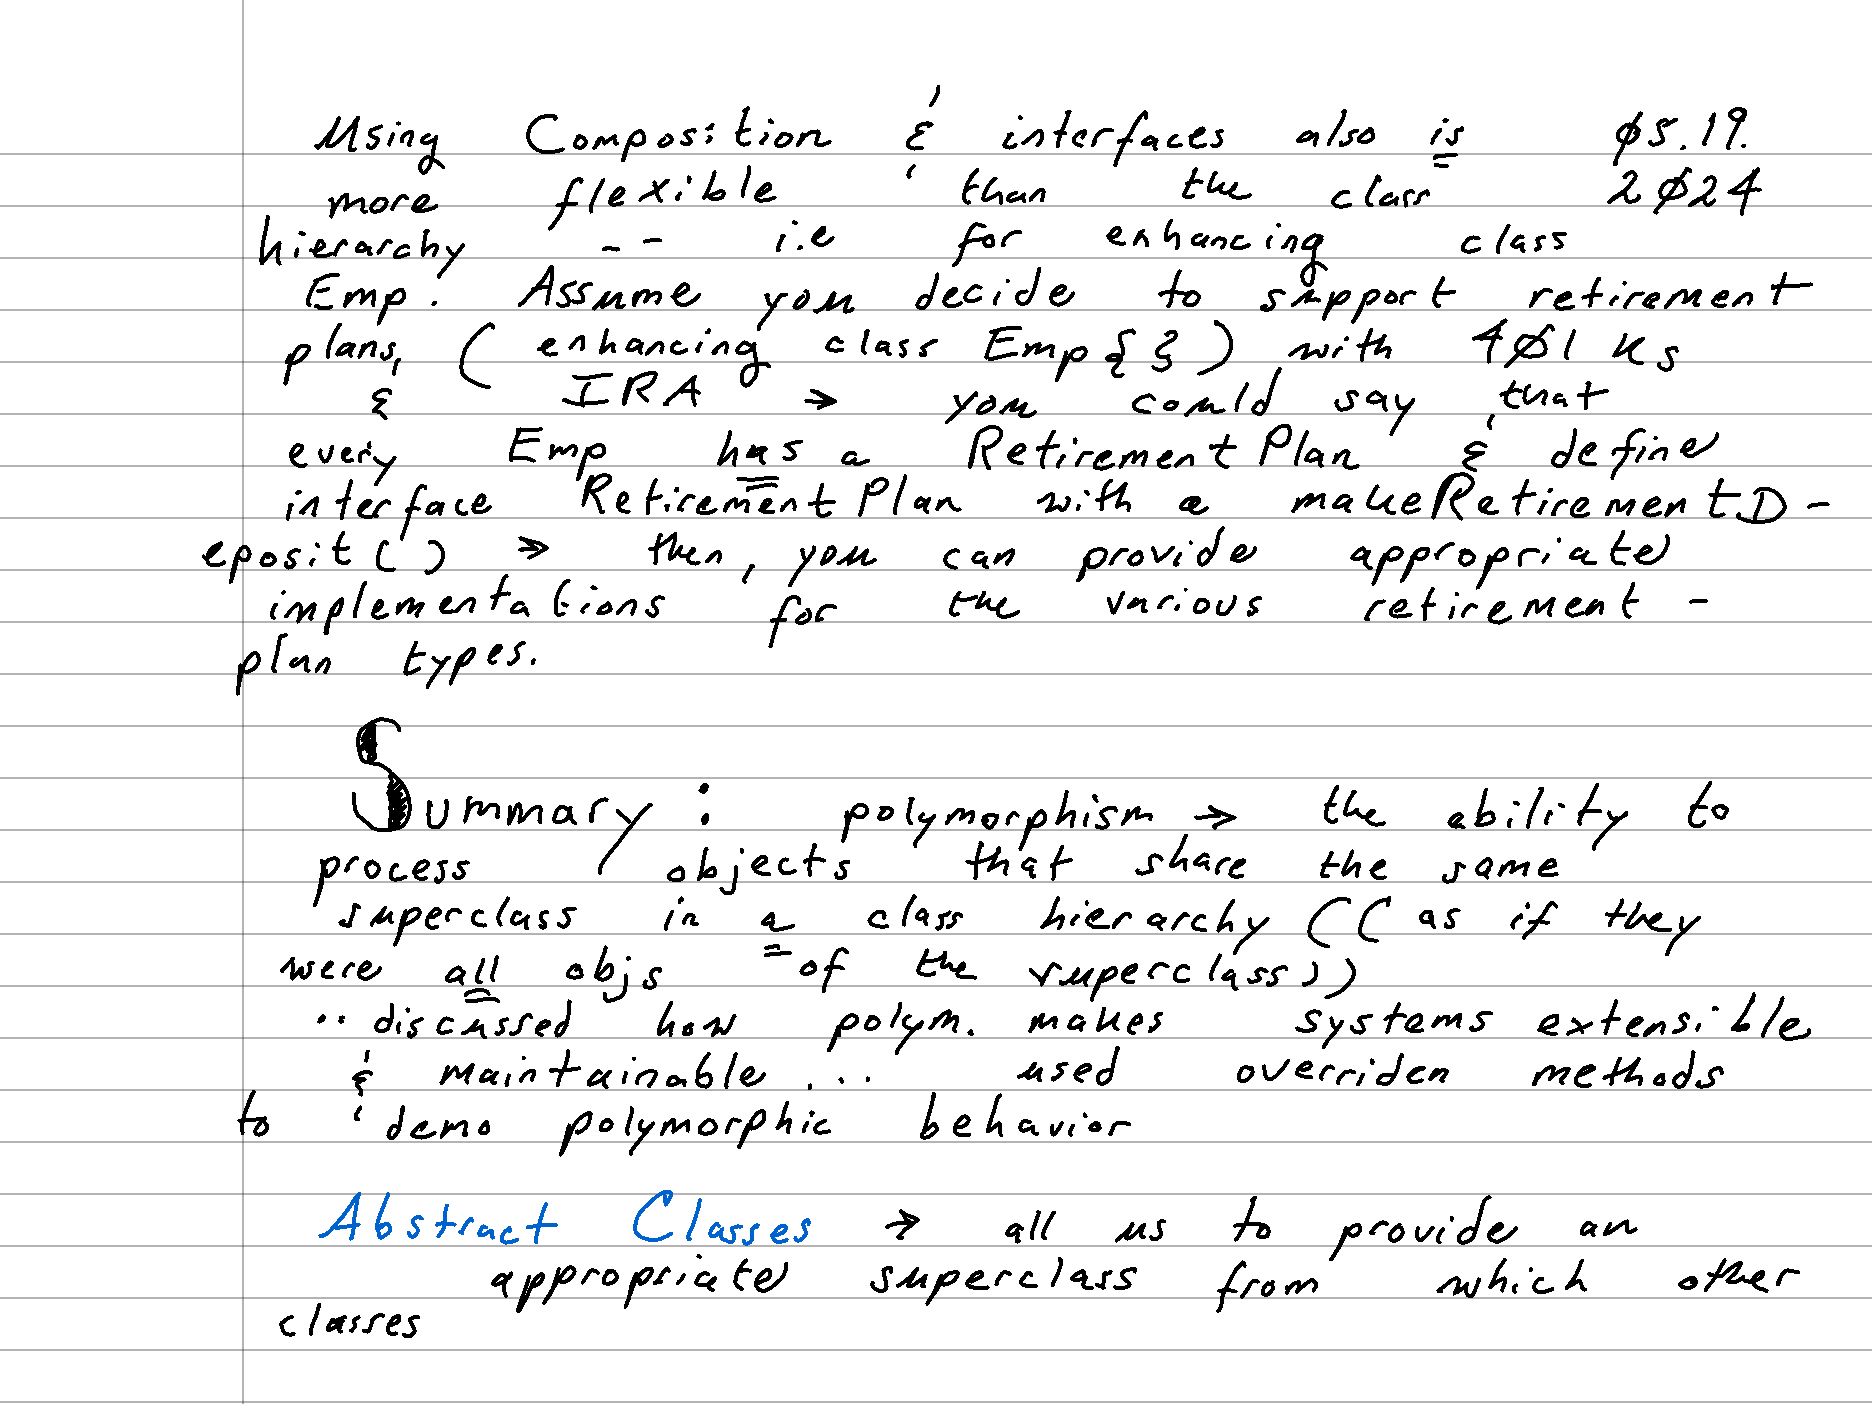 Using Composition & interfaces also is 05.19.
more flexible than the class 2024
hierarchy -- i.e for enhancing class
Emp. Assume you decide to support retirement
plans, ( enhancing class Emp{} ) with 401 Ks
& IRA → you could say that
every Emp has a RetirementPlan & define
interface RetirementPlan with a makeRetirementD-
eposit( ) → then, you can provide appropriate
implementations for the various retirement -
plan types.
Summary : polymorphism → the ability to
process objects that share the same
superclass in a class hierarchy (( as if they
were all objs of the superclass))
.. discussed how polym. makes systems extensible
& maintainable ... used overriden methods
to demo polymorphic behavior
Abstract Classes → all us to provide an
appropriate superclass from which other
classes